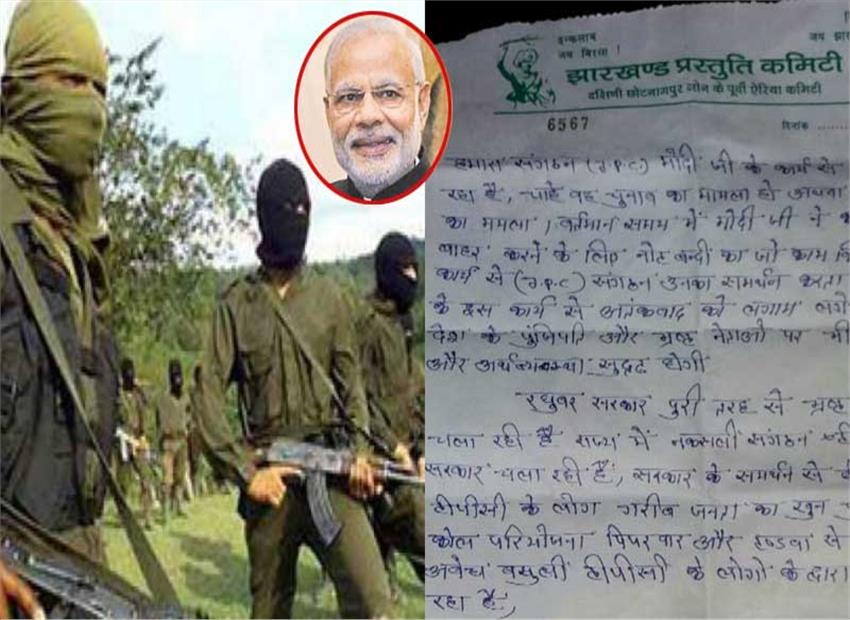 इन्कलाब
जय बिरसा !
जय झार
झारखण्ड प्रस्तुति कमिटी
दक्षिणी छोटानागपुर जोन के पूर्वी ऐरिया कमिटी
6567
दिनांक ........
हमारा संगठन (J.P.C) मोदी जी के कार्य से
रहा है, चाहे वह चुनाव का मामला हो अथवा
का ममला, वर्तमान समय में मोदी जी ने
बाहर करने के लिए नोट बन्दी का जो काम
कार्य से (J.P.C) संगठन उनका समर्थन करता
के इस कार्य से आतंकवाद को लगाम लगे
देश के पुंजिपति और भ्रष्ट नेताओ पर भी
और अर्थव्यवस्था सुदृढ होगी
रघुवर सरकार पुरी तरह से भ्रष्ट
चला रही है राज्य में नक्सली संगठन
सरकार चला रही है, सरकार के समर्थन से
टीपीसी के लोग गरीब जनता का खुन
कोल परियोजना पिपरवार और से
अवैध वसुली टीपीसी के लोगो के द्वारा
रहा है,